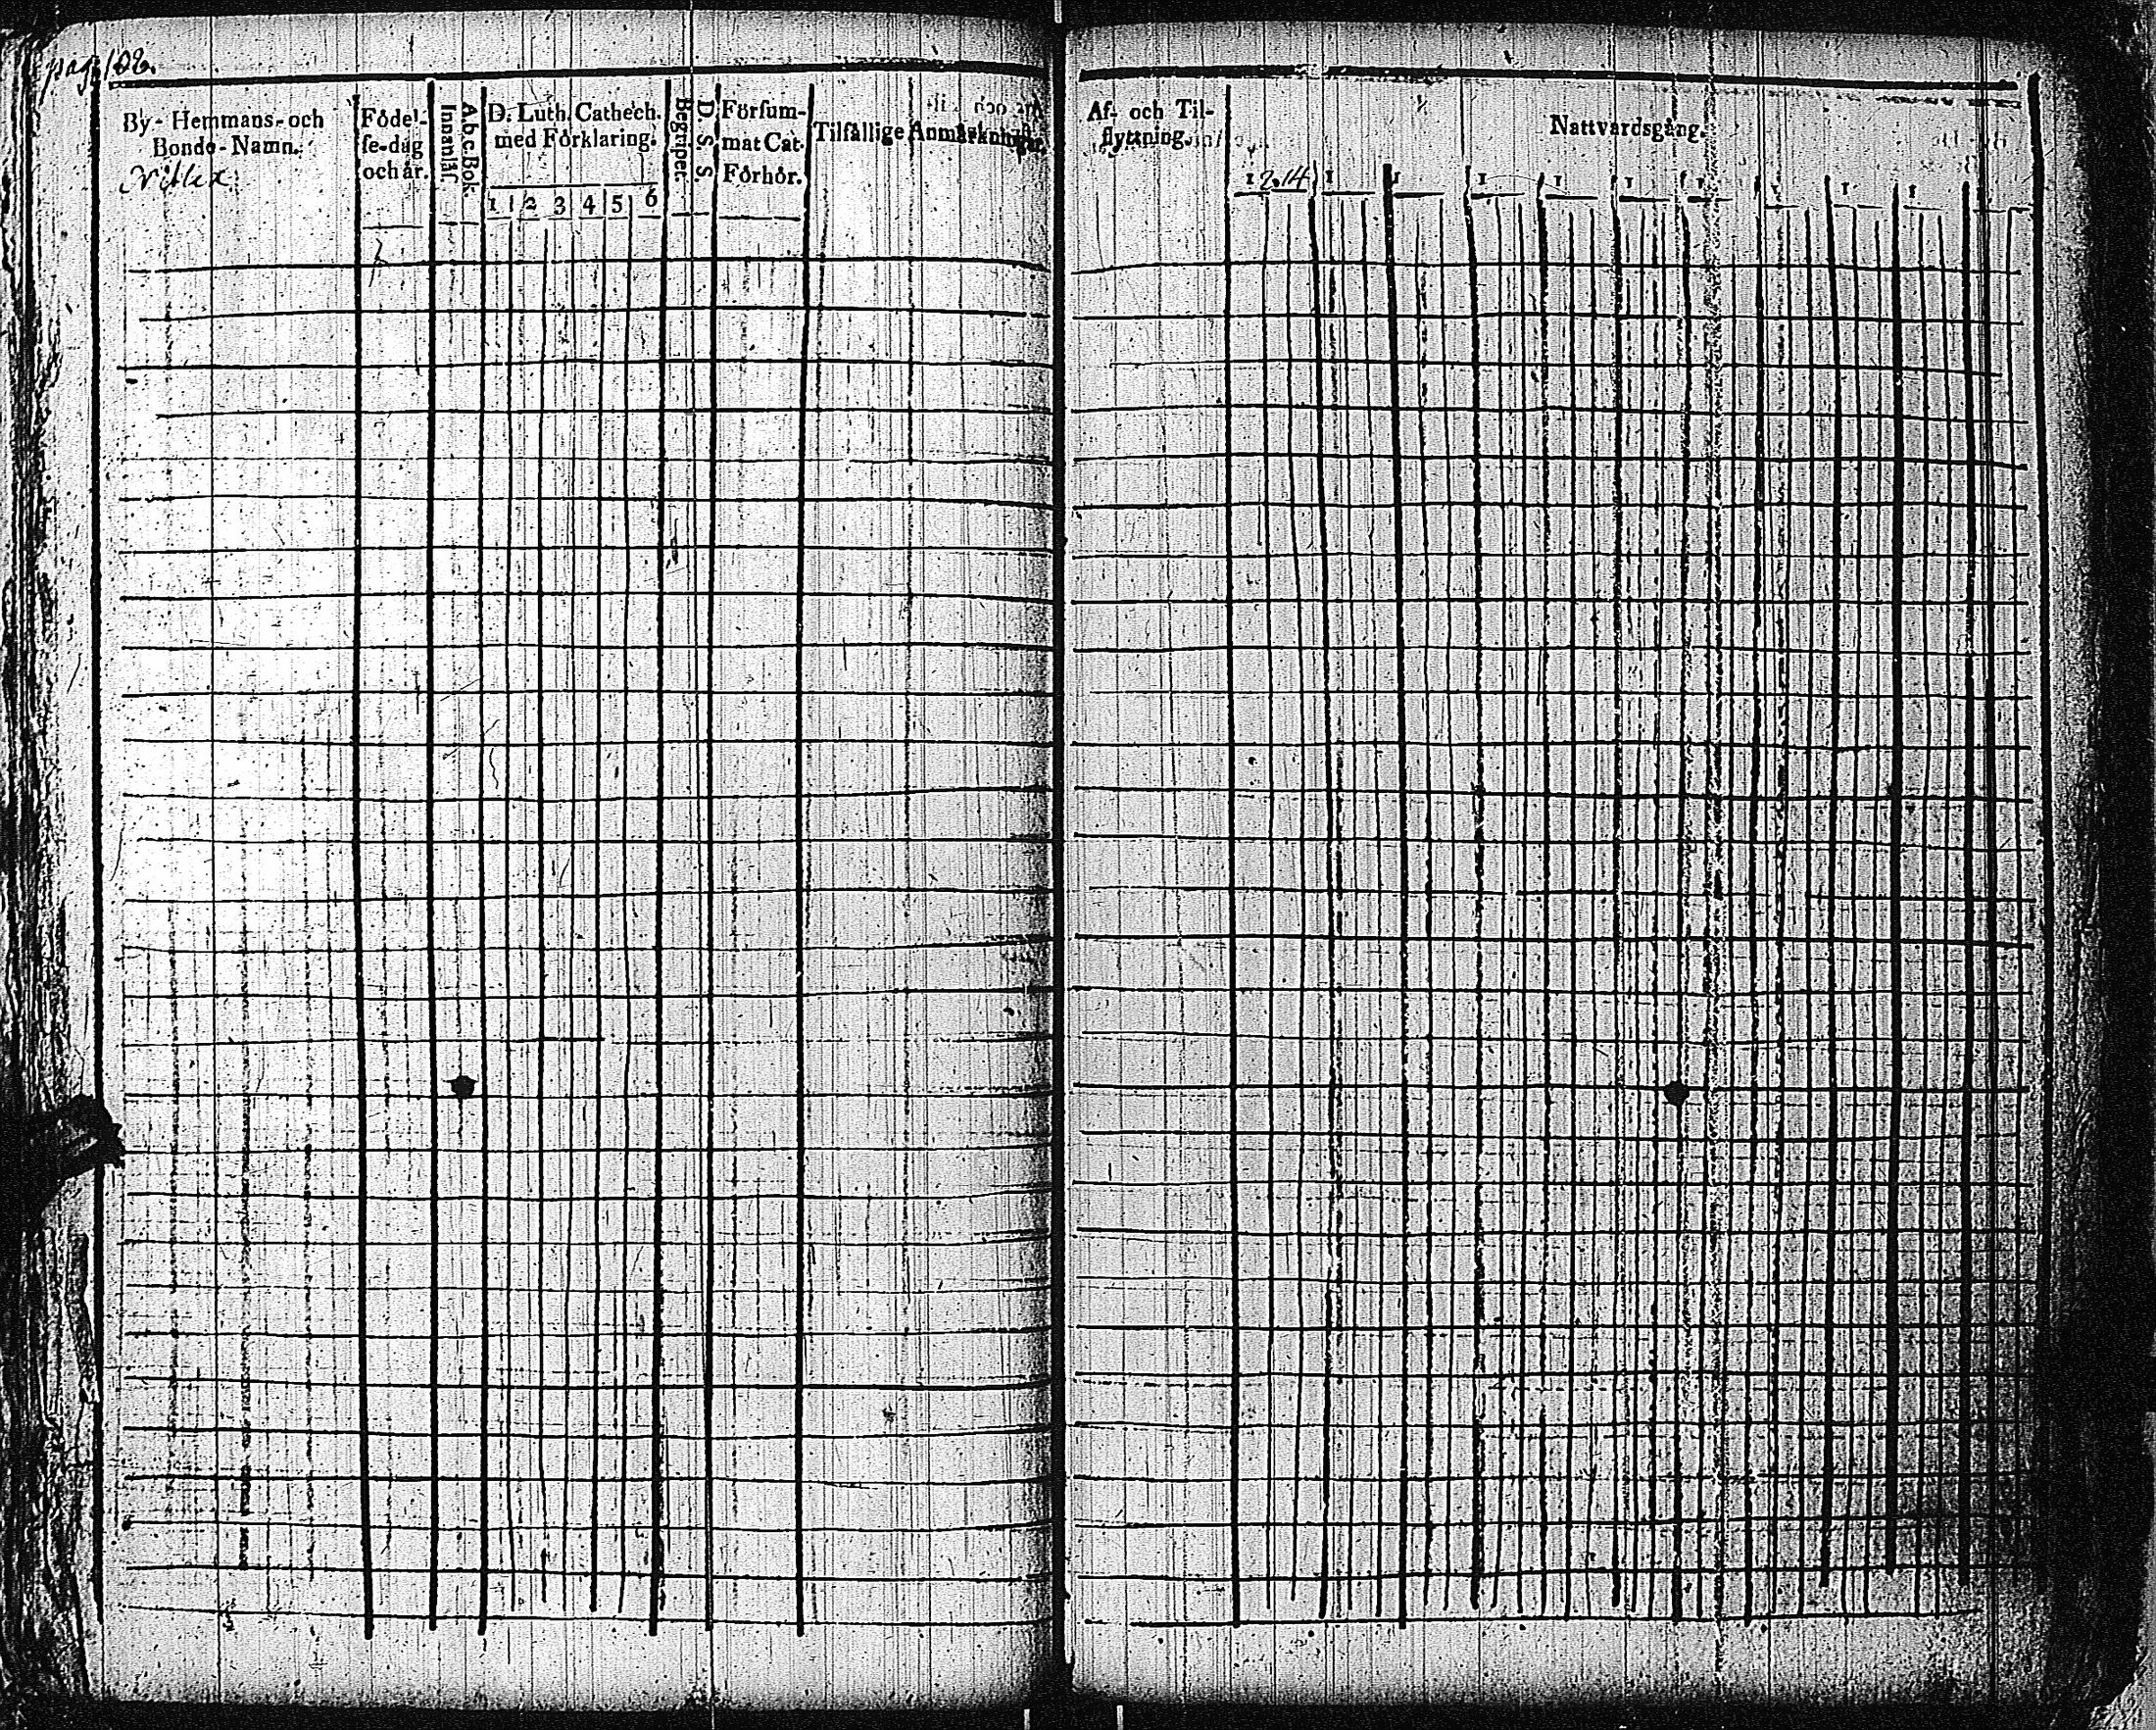 pag. 108.
By- Hemmans- och
Bonde-Namn.
Födel-
se-dag
och år.
A.b.c.Bok.
Innanläs.
D. Luth. Cathech.
med Förklaring.
1 2 3 4 5 6
D. S. S.
Begripet.
Försum-
mat Cat.
Förhör.
Tilfällige Anmärkningar.
Af- och Til-
flyttning.
Nattvardsgång.
1 2.14 1 1 1 1 1 1 1 1 1